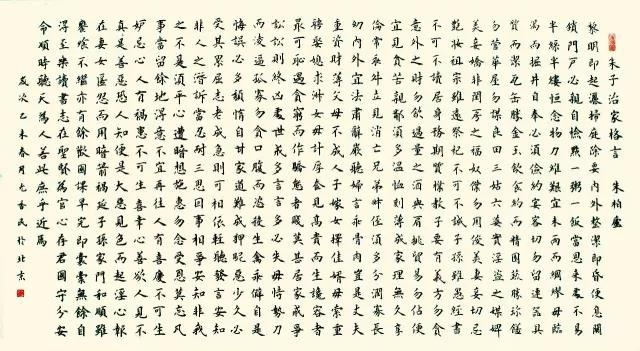 朱子治家格言 朱柏廬
黎明即起灑掃庭除要內外整潔即昏便息關
鎖門戶必親自檢點一粥一飯當思來處不易
半絲半縷恒念物力維艱宜未雨而綢繆毋臨
渴而掘井自奉必須儉約宴客切勿留連器具
質而潔瓦缶勝金玉飲食約而精園蔬勝珍饈
勿營華屋勿謀良田三姑六婆實淫盜之媒婢
美妾嬌非閨房之福奴僕勿用俊美妻妾切忌
艷妝祖宗雖遠祭祀不可不誠子孫雖愚經書
不可不讀居身務期質樸教子要有義方勿貪
意外之財勿飲過量之酒與肩挑貿易勿佔便
宜見貧苦親鄰須多溫恤刻薄成家理無久享
倫常乖舛立見消亡兄弟叔侄須多分潤寡長
幼內外宜法肅辭嚴聽婦言乖骨肉豈是丈夫
重資財薄父母不成人子嫁女擇佳婿毋索重
聘娶媳求淑女毋計厚奩見富貴而生諂容者
最可恥遇貧窮而作驕態者賤莫甚居家戒爭
訟訟則終凶處世戒多言言多必失毋恃勢力
而凌逼孤寡勿貪口腹而恣殺生禽乖僻自是
悔誤必多頹惰自甘家道難成狎昵惡少久必
受其累屈志老成急則可相依輕聽發言安知
非人之譖訴當忍耐三思因事相爭安知非我
之不是須平心遭暗想施惠勿念受恩莫忘凡
事當留餘地得意不宜再往人有喜慶不可生
妒忌心人有禍患不可生喜幸心善欲人見不
真是善惡恐人知便是大惡見色而起淫心報
在妻女匿怨而用暗箭禍延子孫家門和順雖
饔飧不繼亦有餘歡國課早完即囊橐無餘自
得至樂讀書志在聖賢為官心存君國守分安
命順時聽天為人若此庶乎近焉
歲次乙未春月 香民於北京